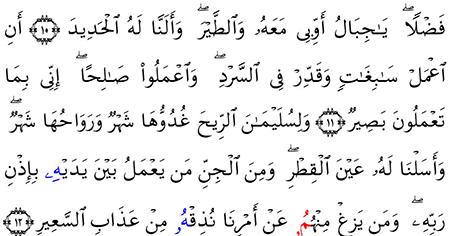 فَضْلًاۖ يَٰجِبَالُ أَوِّبِى مَعَهُۥ وَالطَّيْرَۖ وَأَلَنَّا لَهُ الْحَدِيدَ ١٠ أَنِ
اعْمَلْ سَٰبِغَٰتٍ وَقَدِّرْ فِى السَّرْدِۖ وَاعْمَلُوا۟ صَٰلِحًاۖ إِنِّى بِمَا
تَعْمَلُونَ بَصِيرٌ ١١ وَلِسُلَيْمَٰنَ الرِّيحَ غُدُوُّهَا شَهْرٌ وَرَوَاحُهَا شَهْرٌۖ
وَأَسَلْنَا لَهُۥ عَيْنَ الْقِطْرِۖ وَمِنَ الْجِنِّ مَن يَعْمَلُ بَيْنَ يَدَيْهِۦ بِإِذْنِ
رَبِّهِۦۖ وَمَن يَزِغْ مِنْهُمُۥ عَنْ أَمْرِنَا نُذِقْهُۥ مِنْ عَذَابِ السَّعِيرِ ١٢